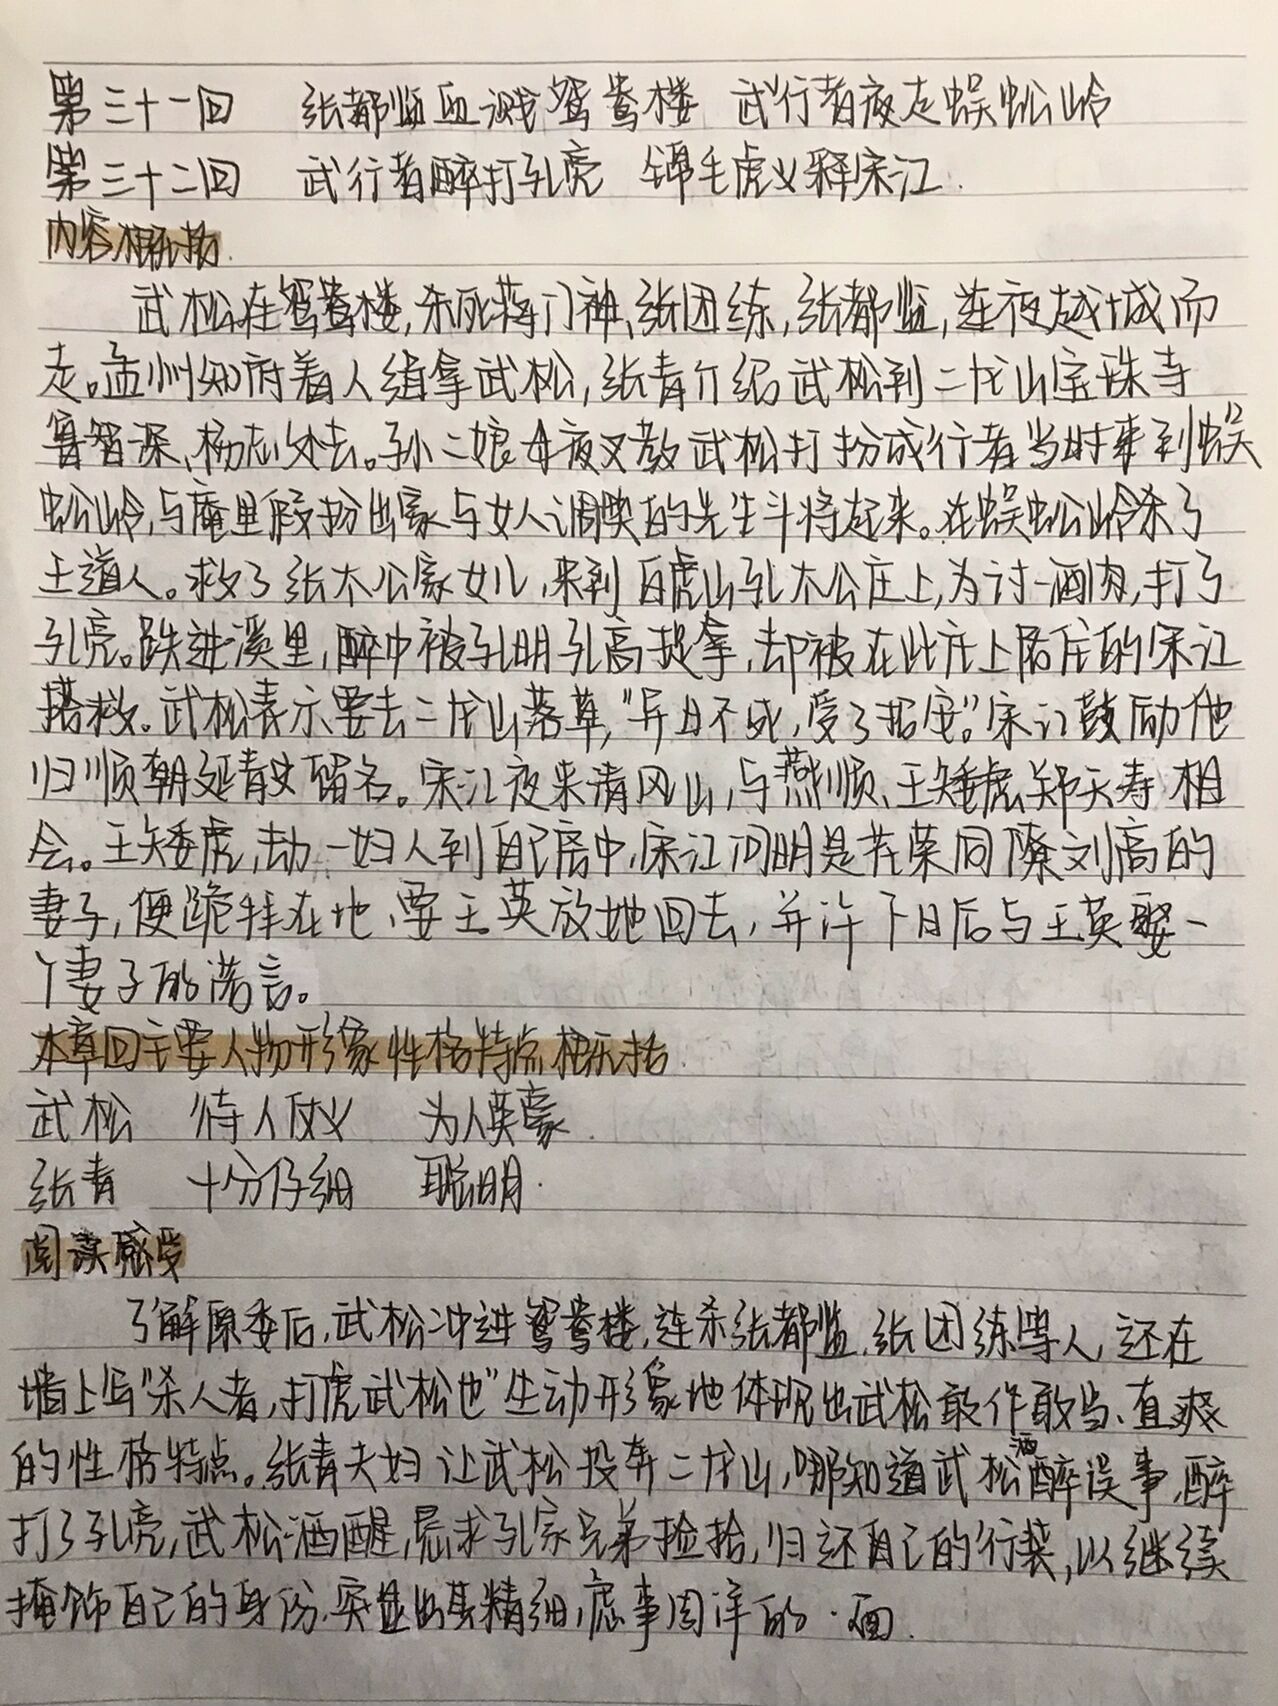 第三十一回 张都监血溅鸳鸯楼 武行者夜走蜈蚣岭
第三十二回 武行者醉打孔亮 锦毛虎义释宋江.
内容概括.
武松在鸳鸯楼,杀死蒋门神、张团练,张都监,连夜越城而
走。孟州知府着人缉拿武松,张青介绍武松到二龙山宝珠寺
鲁智深、杨志处去。孙二娘母夜叉教武松打扮成行者当时来到蜈
蚣岭,与庵里假扮出家与女人调笑的先生斗将起来。在蜈蚣岭杀了
王道人。救了张太公家女儿,来到白虎山孔太公庄上,为讨一酒肉,打了
孔亮。跌进溪里,醉中被孔明孔亮捉拿,却被在此庄上居住的宋江
搭救。武松表示要去二龙山落草,"异日不死,受了招安。"宋江鼓励他
归顺朝廷青史留名。宋江夜来清风山,与燕顺、王矮虎、郑天寿相
会。王矮虎,劫一妇人到自己房中,宋江问明是花荣同僚刘高的
妻子,便跪拜在地,要王英放她回去,并许下日后与王英娶一
个妻子的诺言。
本章回主要人物形象性格特点概括.
武松 待人仗义 为人英豪.
张青 十分仔细 聪明.
阅读感受
了解原委后,武松冲进鸳鸯楼,连杀张都监.张团练等人,还在
墙上写"杀人者,打虎武松也"生动形象地体现出武松敢作敢当、直爽
的性格特点。张青夫妇让武松投奔二龙山,哪知道武松酒醉误事,醉
打了孔亮,武松酒醒,恳求孔家兄弟捡拾,归还自己的行装,以继续
掩饰自己的身份.突显出其精细,虑事周详的一面.